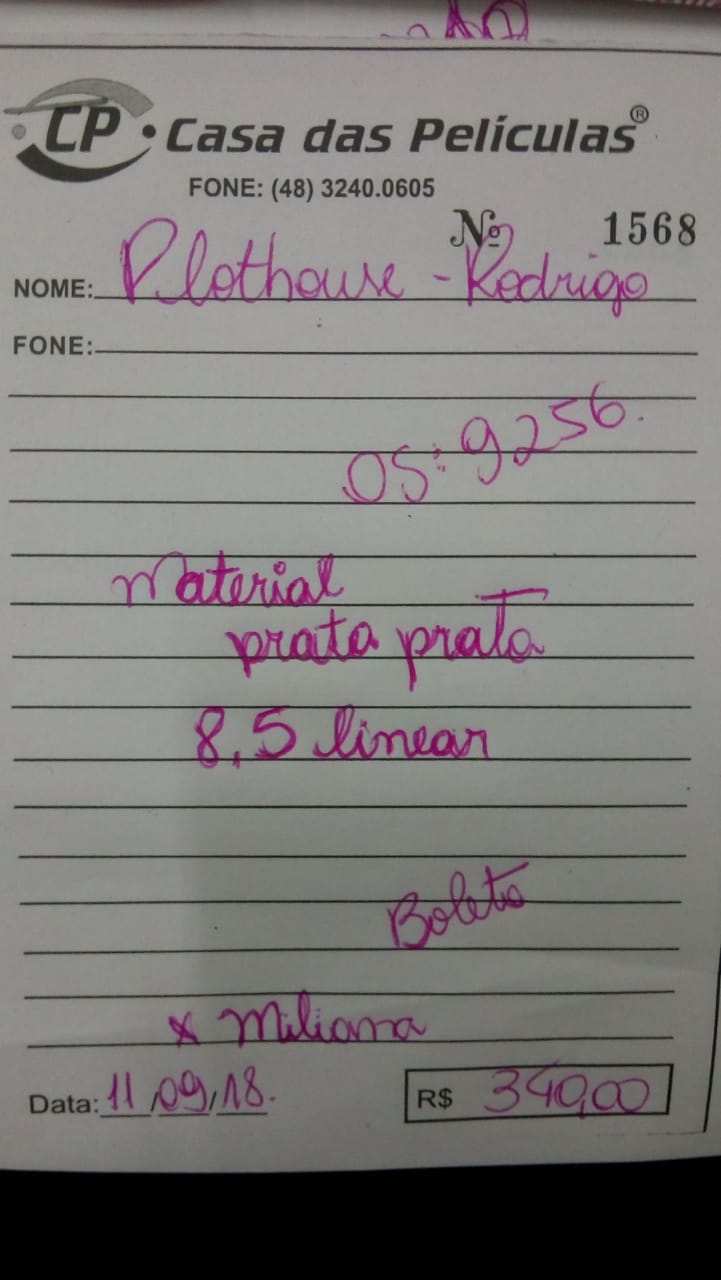 CP • Casa das Películas®
FONE: (48) 3240.0605
Nº 1568
NOME: Plothouse - Rodrigo
FONE:
OS: 9256.
Material
prata prata
8,5 linear
Boleto
x Miliana
Data: 11/09/18.
R$ 340,00